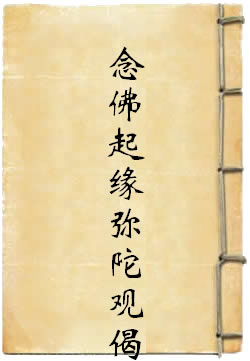 念佛起缘弥陀观偈